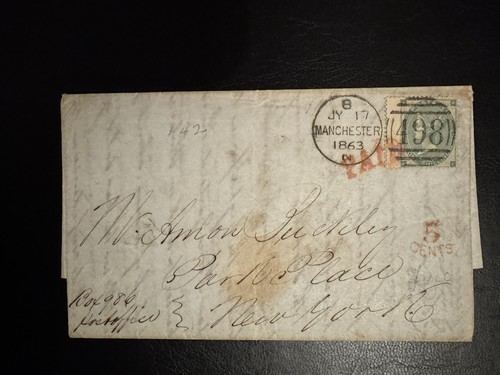 8
JY 17
MANCHESTER
1863
498
PAID
Mr. Amon
Park Place
New York
5
CENTS
Box 986
Post office